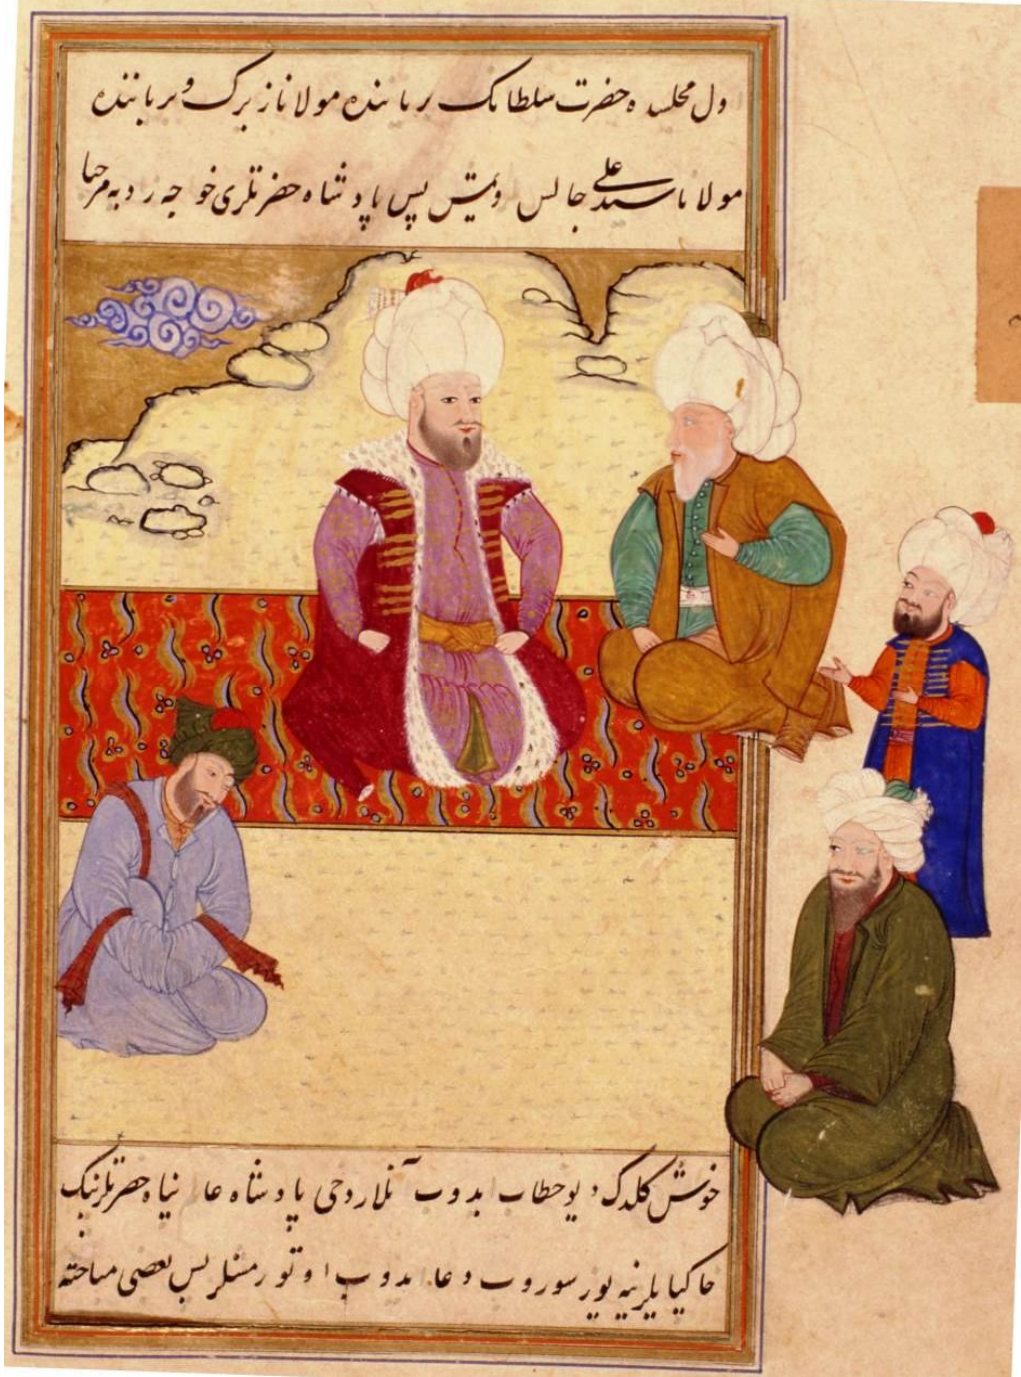 ول مجلسده حضرت سلطانک بر یاننده مولانا زیرک و بر یاننده
مولانا سید علی جالس ویمش پس پادشاه حضرتلری خوجه زاد به مرحبا
خوش کلدک دیو خطاب ایدوب آنلار دخی پادشاه عالم پناه حضرتلرینک
خاکپایلرینه یوز سوروب دعا ایدوب اوتورمشلر پس بعضی مباحثه